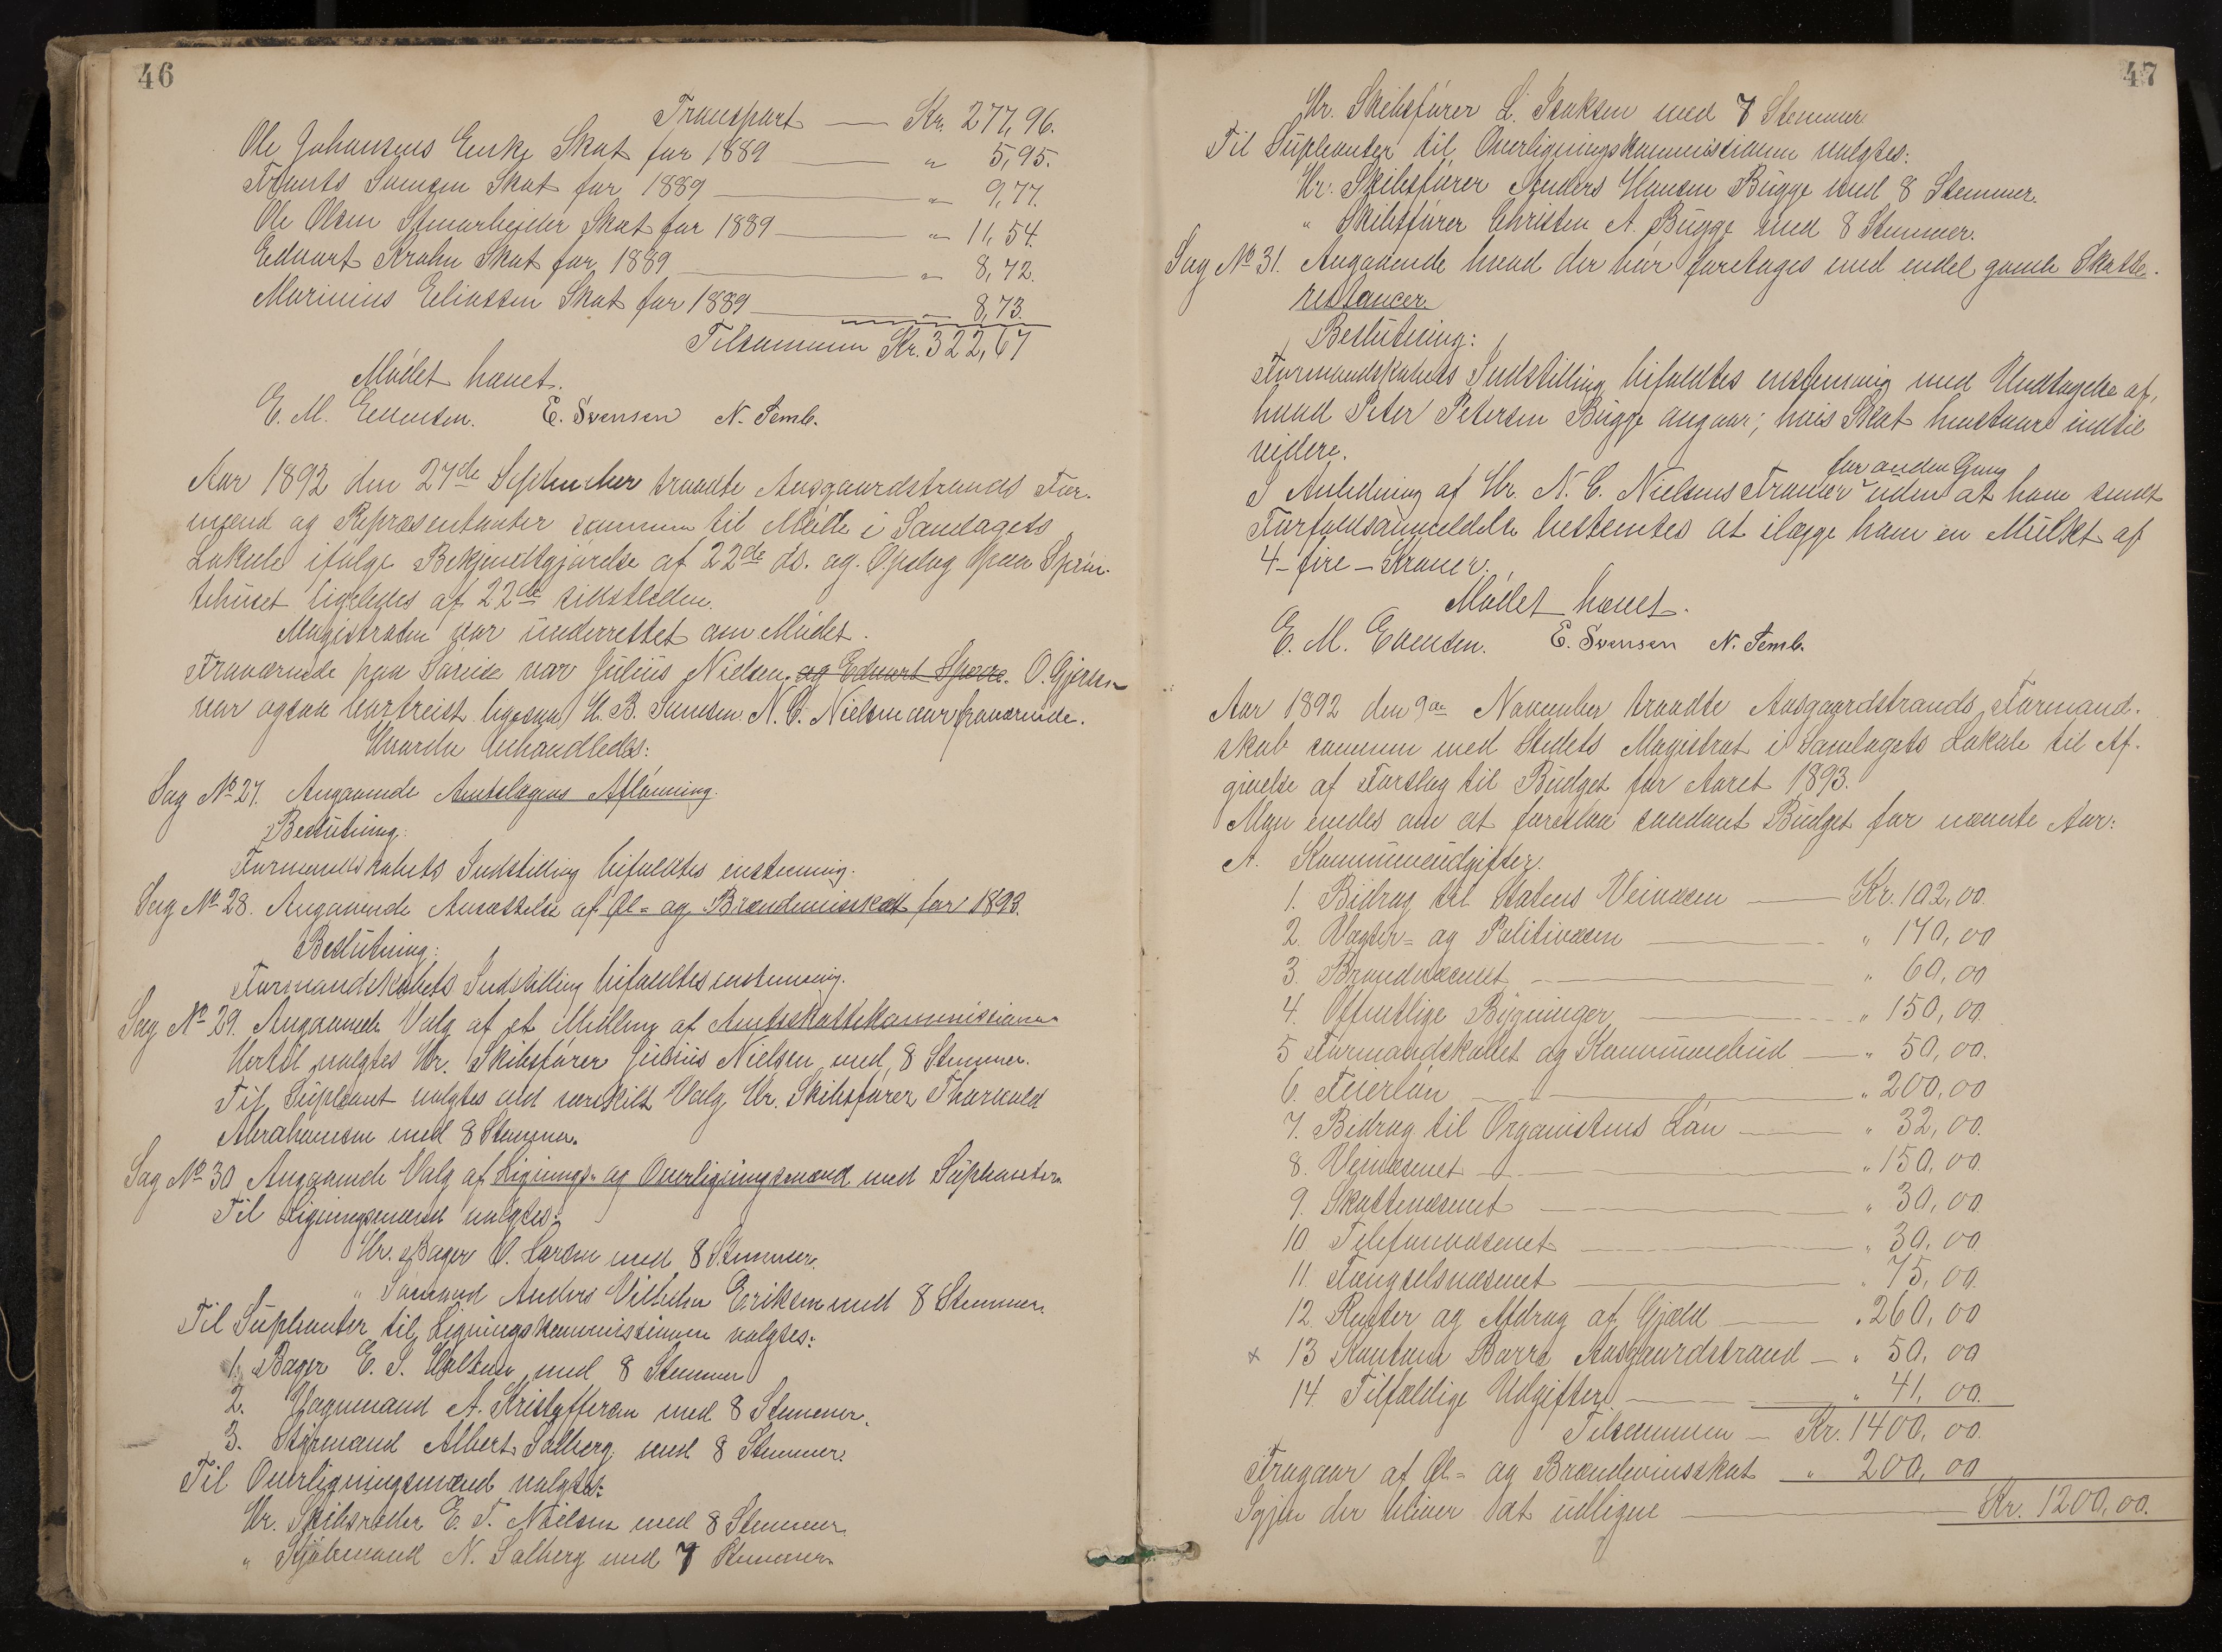 46
Transport — Kr. 277,96.
Ole Johansens Enke Skat for 1889 — " 5,95.
Frants Svensen Skat for 1889 — " 9,77.
Ole Olsen Stenarbeider Skat for 1889 — " 11,54.
Edvart Krohn Skat for 1889 — " 8,72.
Marinius Eliassen Skat for 1889 — " 8,73.
Tilsammen Kr. 322,67
Mödet hævet.
E. M. Evensen. E. Svensen N. Semb.
Aar 1892 den 27de September traadte Aasgaardstrands For-
mænd og Repræsentanter sammen til Møde i Samlagets
Lokale ifölge Bekjendtgjörelse af 22de ds. og Opslag paa Spröi-
tehuset ligeledes af 22de sidstleden.
Magistraten var underrettet om Mödet.
Fraværende paa Søreise var Julius Nielsen. og Edvart O. Gjersen
var ogsaa bortreist ligesaa H. B. Svensen. N. C. Nielsen var fraværende.
Hvorda behandledes:
Sag No 27. Angaaende Amtslægens Aflönning.
Beslutning:
Formandskabets Indstilling bifaldtes enstemmig.
Sag No 28. Angaaende Ansættelse af Øl- og Brændevinsskat for 1893.
Beslutning:
Formandskabets Indstilling bifaldtes enstemmig.
Sag No 29. Angaaende Valg af et Medlem af Amtsskattekommissionen
Hertil valgtes Hr. Skibsförer Julius Nielsen med 8 Stemmer.
Til Supleant valgtes ved særskilt Valg Hr. Skibsförer Thorvald
Abrahamsen med 8 Stemmer.
Sag No 30 Angaaende Valg af Lignings- og Overligningsmænd med Supleanter.
Til Ligningsmænd valgtes:
Hr. Bager O. Larsen med 8 Stemmer.
" Sømand Anders Vilhelm Eriksen med 8 Stemmer.
Til Supleanter til Ligningskommissionen valgtes:
1. Bager E. S. Holtan med 8 Stemmer
2. Vognmand A. Kristoffersen med 8 Stemmer.
3. Styrmand Albert Solberg med 8 Stemmer.
Til Overligningsmænd valgtes:
Hr. Skibsreder E. T. Nielsen med 8 Stemmer.
" Kjöbmand N. Solberg med 7 Stemmer.
47
Hr. Skibsförer L. Isaksen med 7 Stemmer
Til Supleanter til Overligningskommissionen valgtes:
Hr. Skibsförer Anders Hansen Bugge med 8 Stemmer.
" Skibsförer Christen A. Bugge med 8 Stemmer.
Sag No 31. Angaaende hvad der bör foretages med endel gamle Skatte-
restancer.
Beslutning:
Formandskabets Indstilling bifaldtes enstemmig med Undtagelse af,
hvad Peter Petersen Bugge angaar; hvis Skat henstaar indtil
videre.
for anden Gang
I Anledning af Hr. N. C. Nielsens Fravær uden at have sendt
Forfaldsanmeldelse bestemtes at ilægge ham en Mulkt af
4 - fire - Kroner.
Mödet hævet.
E. M. Evensen. E. Svensen N. Semb.
Aar 1892 den 9de November traadte Aasgaardstrands Formand-
skab sammen med Stedets Magistrat i Samlagets Lokale til Af-
givelse af Forslag til Budget for Aaret 1893.
Man enedes om at foreslaa saadant Budget for nævnte Aar:
A. Kommuneudgifter.
1. Bidrag til Statens Veivæsen — Kr. 102,00.
2. Vægter- og Politivæsen — " 170,00
3. Brandvæsenet — " 60,00
4. Offentlige Bygninger — " 150,00.
5 Formandskabet og Kommunebud — " 50,00.
6. Feierlön — " 200,00
7. Bidrag til Organistens Lön — " 32,00.
8. Veivæsenet — " 150,00.
9. Skattevæsenet — " 30,00.
10 Telefonvæsenet — " 30,00
11. Fængselsvæsenet — " 75,00.
12. Renter og Afdrag af Gjæld — " 260,00
x 13 Borre Aasgaardstrand — " 50,00
14. Tilfældige Udgifter — " 41,00.
Tilsammen — Kr. 1400,00.
Fragaar af Øl- og Brændevinsskat — " 200,00
der bliver at udligne — Kr. 1200,00.